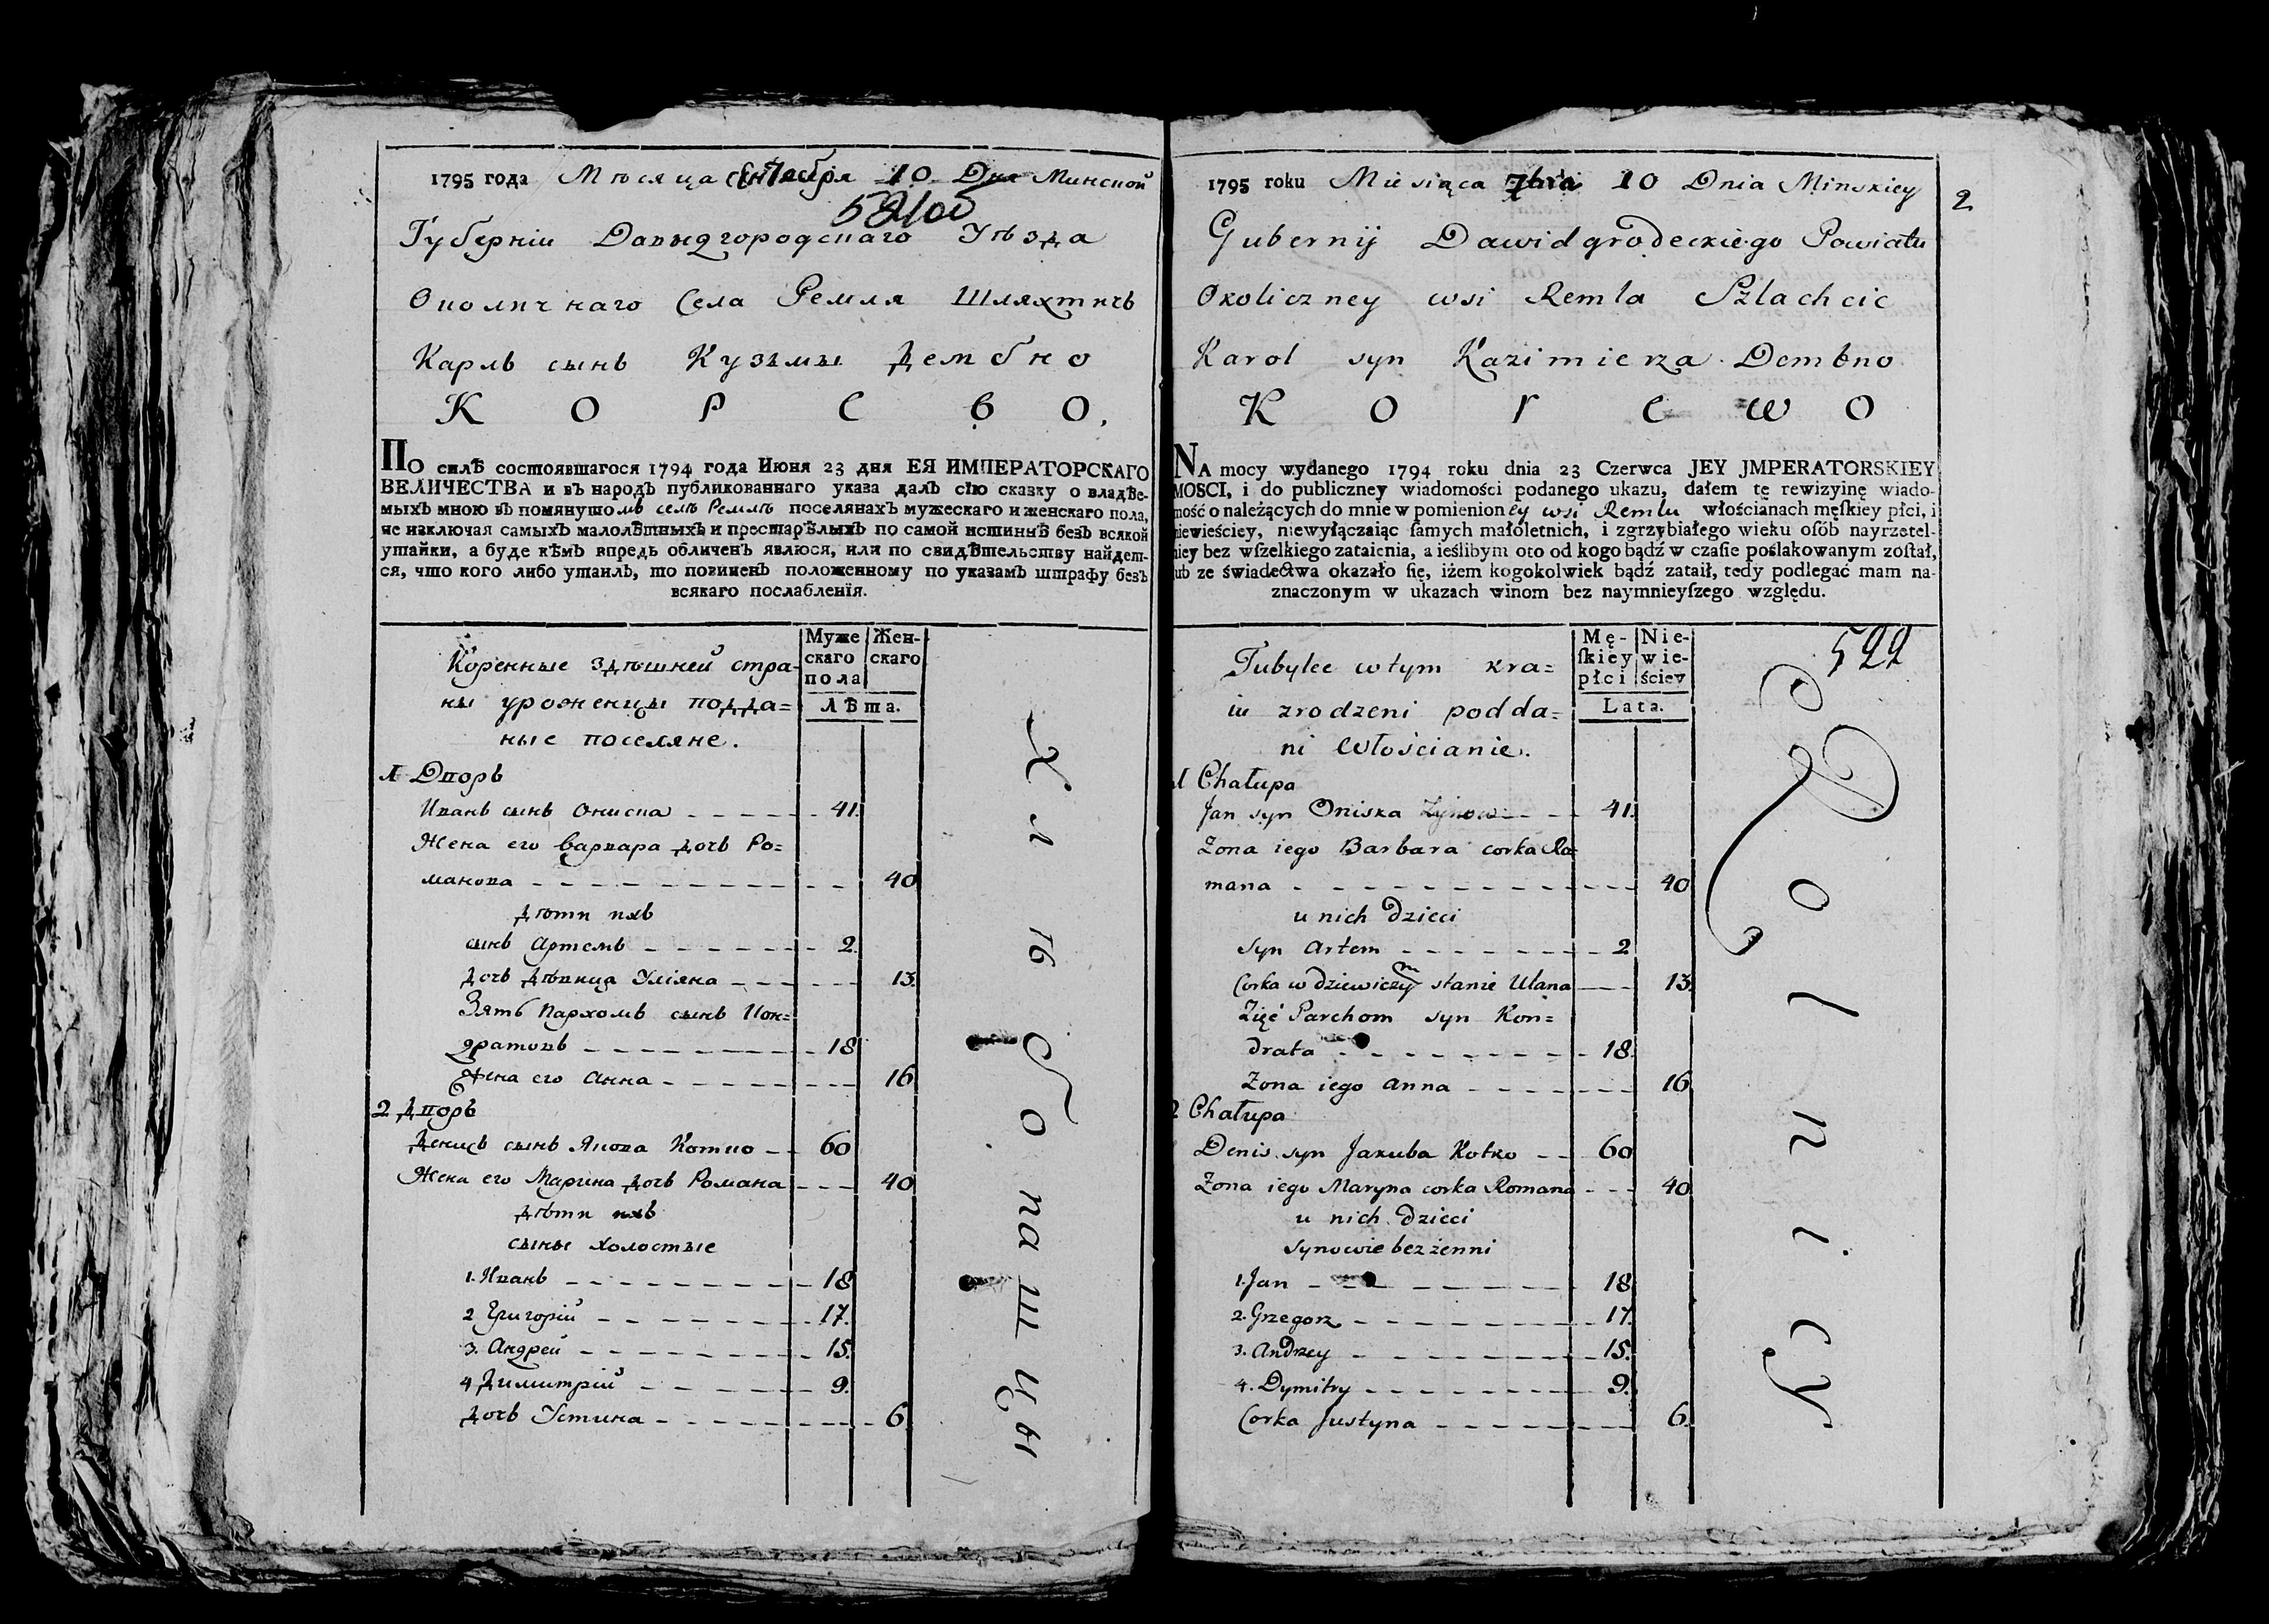 1795 года Мѣсяца Сентября 10 Дня Минской
Губерніи Давыдгородскаго Уѣзда
Околичнаго Села Ремля Шляхтичь
Карль сынь Кузьмы Дембно
К О Р Е В О,
ПО силѢ состоявшагося 1794 года Июня 23 дня ЕЯ ИМПЕРАТОРСКАГО
ВЕЛИЧЕСТВА и вЪ народЪ публикованнаго указа далЪ сїю сказку о владѢе-
мыхЪ мною вЪ помянутомъ селѣ Ремлѣ поселянахЪ мужескаго и женскаго пола,
не изключая самыхЪ малолѢтныхЪ и престарѢлыхЪ по самой истиннѢ безЪ всякой
утайки, а буде кѢмЪ впредь обличенЪ явлюся, или по свидѢтельству найдет-
ся, что кого либо утаилЪ, то повиненЪ положенному по указамЪ штрафу безЪ
всякаго послабленїя.
Коренные здѣшней стра-
ны уроженцы подда=
ные поселяне.
Муже
скаго
пола
Жен-
скаго
ЛѢта.
1 Дворь
Ивань сынь Ониска 41.
Жена его Варвара дочь Ро=
манова 40
дѣти ихь
сынь Артемь 2.
дочь дѣвица Уліяна 13.
Зять Пархомь сынь Кон=
дратовь 18
Жена его Анна 16
2 Дворь
Денись сынь Якова Котко 60
Жена его Марина дочь Романа 40
дѣти ихь
сыны холостые
1. Ивань 18
2 Григорій 17.
3. Андрей 15.
4 Димитрій 9.
дочь Устина 6.
Хлѣбопашцы
1795 roku Miesiąca 7bra 10 Dnia Minskiey
2
Gubernij Dawidgrodeckiego Powiatu
Okoliczney wsi Remla Szlachcic
Karol syn Kazimierza Dembno
K o r e w o
NA mocy wydanego 1794 roku dnia 23 Czerwca JEY JMPERATORSKIEY
MOSCI, i do publiczney wiadomości podanego ukazu, dałem tę rewizyinę wiado-
mość o należących do mnie w pomienioney wsi Remlu włościanach męſkiey płci, i
niewieściey, niewyłączaiąc ſamych małoletnich, i zgrzybiałego wieku oſób nayrzetel-
niey bez wſzelkiego zataienia, a ieślibym oto od kogo bądź w czaſie poślakowanym zoſtał,
lub ze świadectwa okazało ſię, iżem kogokolwiek bądź zataił, tedy podlegać mam na-
znaczonym w ukazach winom bez naymnieyſzego względu.
Tubylce wtym kra=
iu zrodzeni podda=
ni Włościanie.
Mę-
ſkiey
płci
Nie-
wie-
ściey
Lata.
522
1 Chałupa
Jan syn Oniska 41.
Zona iego Barbara corka Ro=
mana 40
u nich dzieci
syn Artem 2
Corka w dziewiczym stanie Ulana 13.
Zięć Parchom syn Kon=
drata 18.
Zona iego Anna 16
2 Chałupa
Denis syn Jakuba Kotko 60
Zona iego Maryna corka Romana 40
u nich dzieci
synowie bezżenni
1. Jan 18
2. Grzegorz 17.
3. Andrzey 15.
4. Dymitry 9.
Corka Justyna 6.
Rolnicy